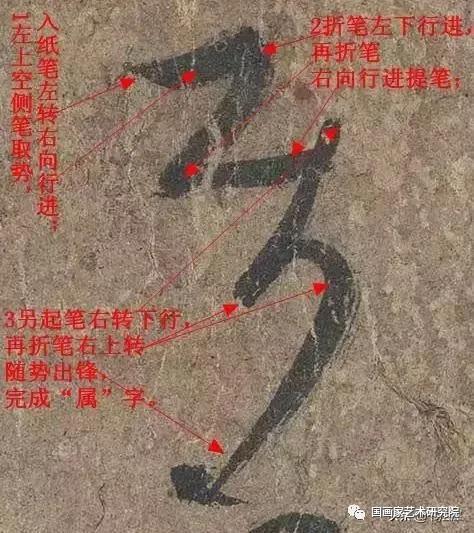 1左上空侧笔取势，
入纸笔左转右向行进；
2折笔左下行进，
再折笔
右向行进提笔；
属
3另起笔右转下行，
再折笔右上转
随势出锋，
完成“属”字。
国画家艺术研究院